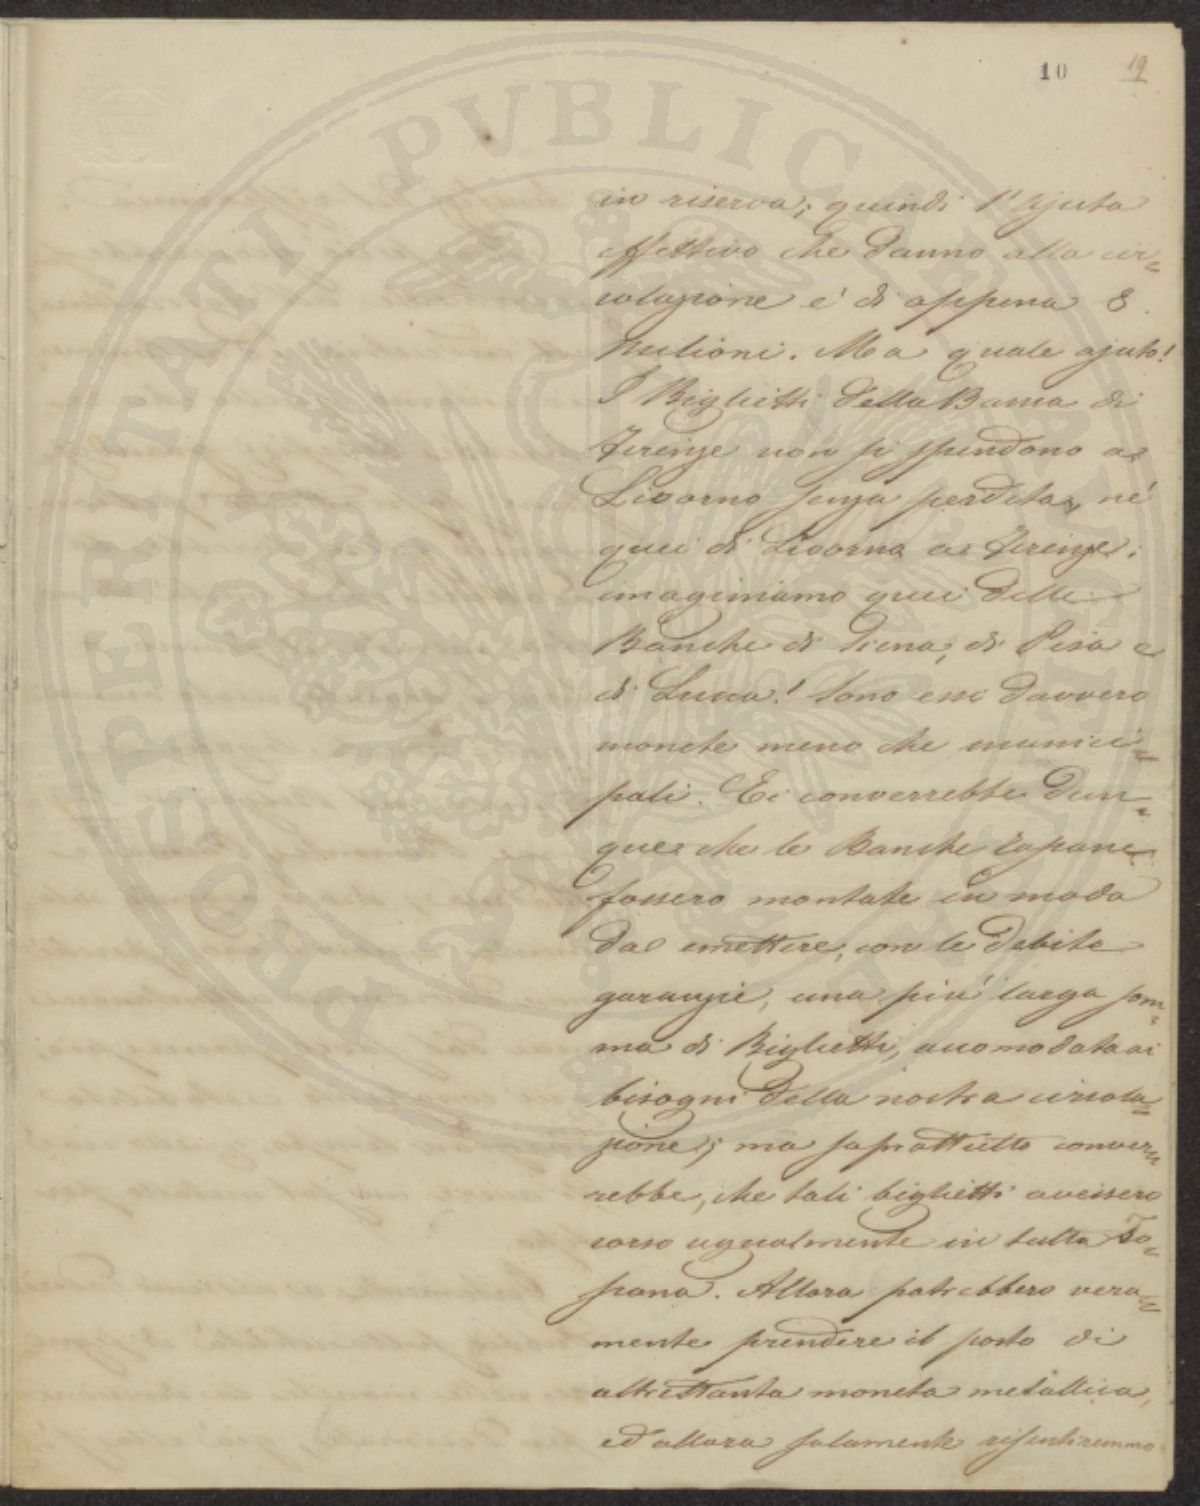 10 19
in riserva; quindi l'ajuto
effettivo che danno alla cir=
colazione e' di appena 8
Milioni. Ma quale ajuto!
I Biglietti della Banca di
Firenze non si spendono a
Livorno senza perdita, né
quei di Livorno a Firenze:
imaginiamo quei delle
Banche di Siena, di Pisa e
di Lucca! Sono essi davvero
monete meno che munici=
pali. Ei converrebbe dun=
que che le Banche Toscane
fossero montate in modo
da emettere, con le debite
garanzie, una piu' larga som=
ma di Biglietti, accomodata ai
bisogni della nostra circola=
zione; ma soprattutto conver=
rebbe, che tali biglietti avessero
corso ugualmente in tutta To=
scana. Allora potrebbero vera=
mente prendere il posto di
altrettanta moneta metallica,
ed allora solamente risentiremmo
PROSPERITATI PUBLICAE